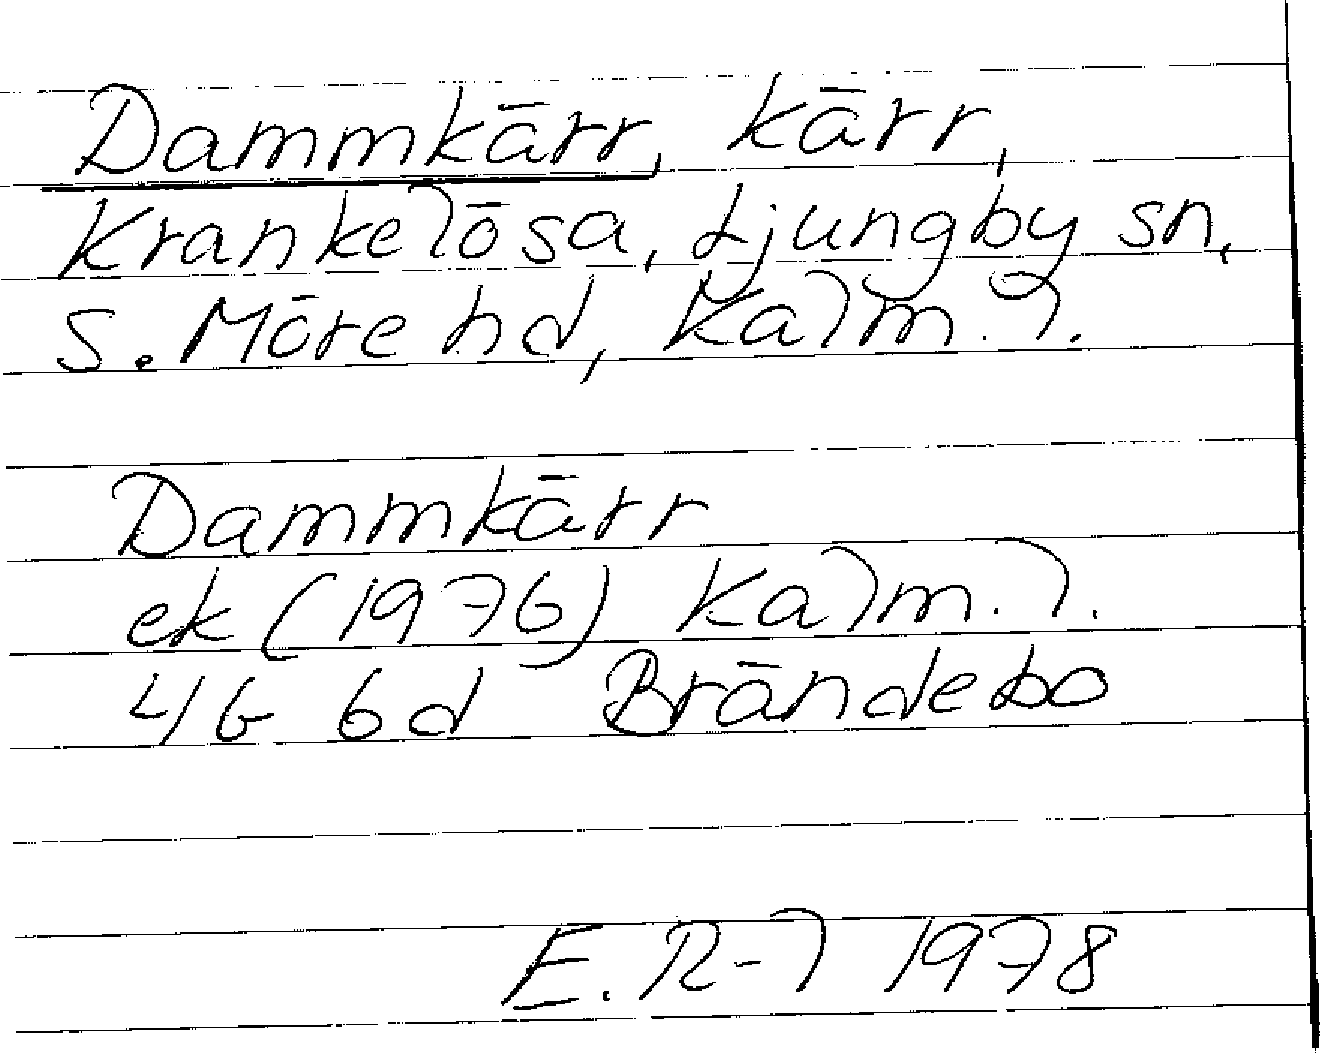 Dammkärr, kärr,
Krankelösa, Ljungby sn,
S. Möre hd, Kalm. l.
Dammkärr
ek (1976) Kalm. l.
4G 6d Brändebo
E. R-l 1978